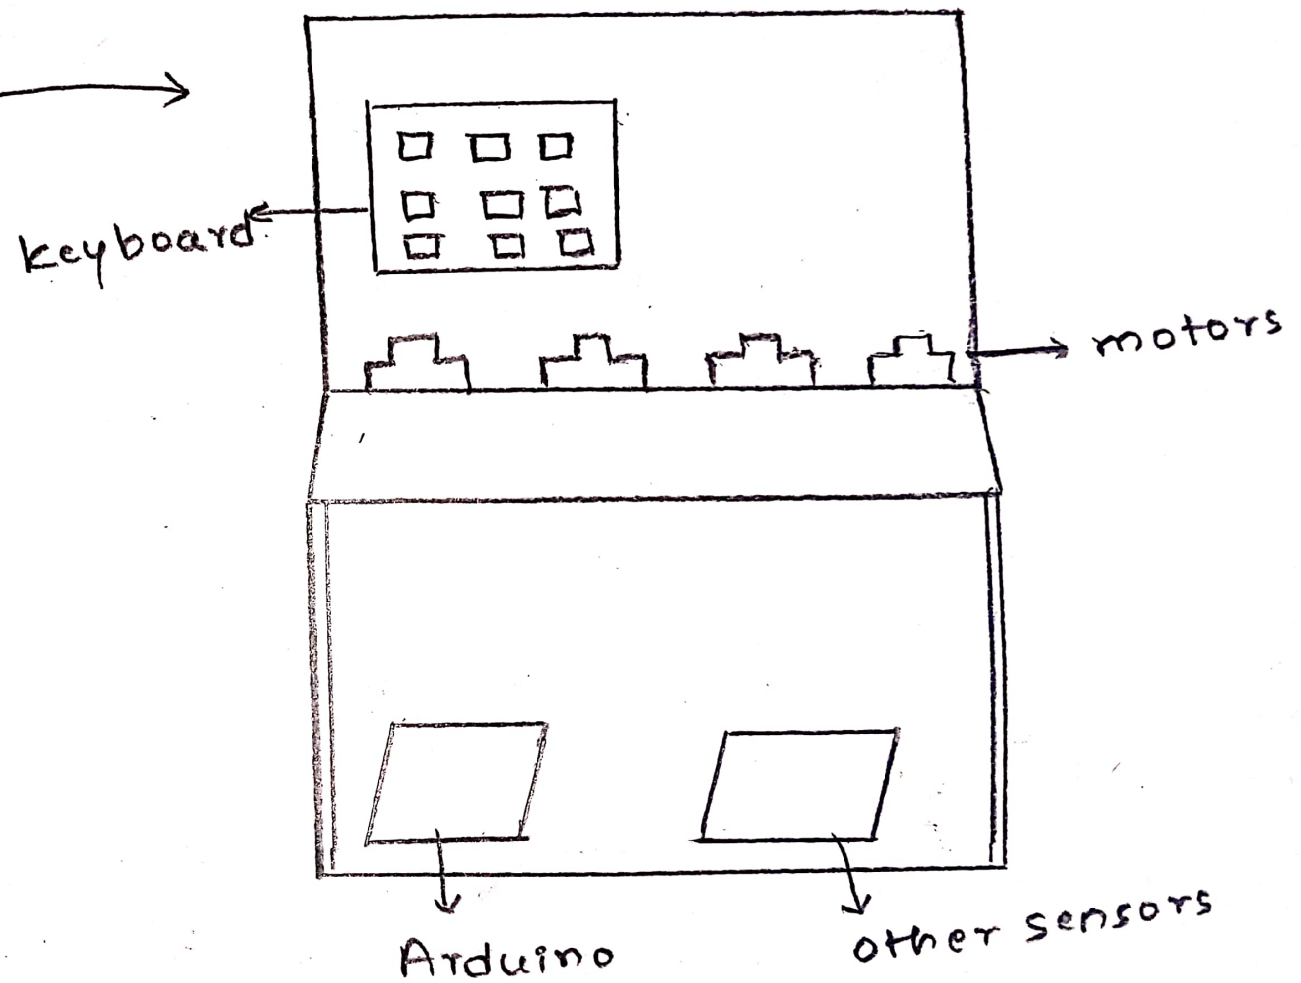 keyboard
motors
Arduino
other sensors